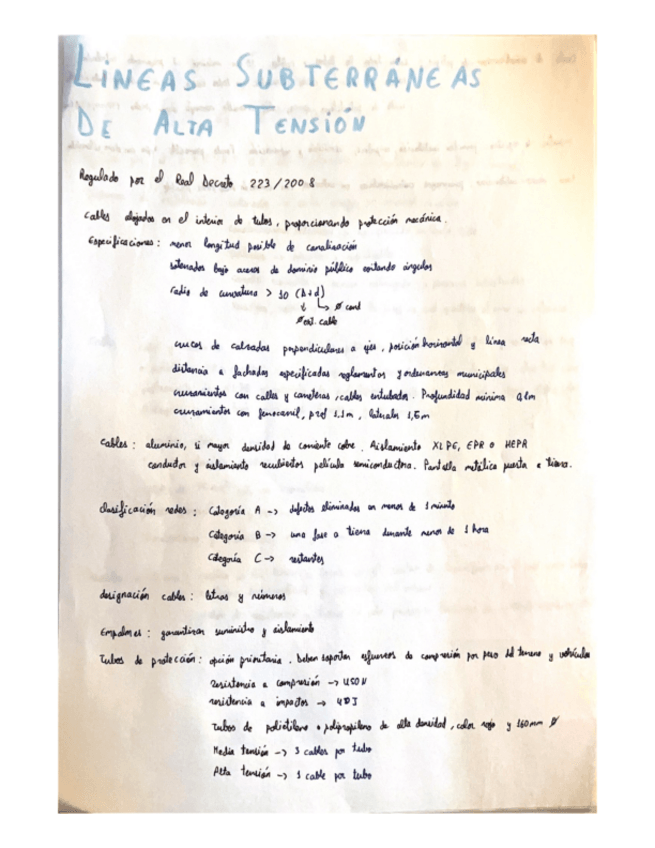 LÍNEAS SUBTERRÁNEAS
DE ALTA TENSIÓN
Regulado por el Real Decreto 223/2008
Cables alojados en el interior de tubos, proporcionando protección mecánica.
Especificaciones: menor longitud posible de canalización
soterrados bajo aceras de dominio público evitando ángulos
radio de curvatura > 10 (D+d)
↓ ↳ Ø cond
Ø ext. cable
cruces de calzadas perpendiculares a ejes, posición horizontal y línea recta
distancia a fachadas especificadas reglamentos y ordenanzas municipales
cruzamientos con calles y carreteras, cables entubados. Profundidad mínima
cruzamientos con ferrocarril, prof 1,1m, laterales 1,5m
Cables: aluminio, si mayor densidad de corriente cobre. Aislamiento XLPE, EPR o HEPR
conductor y aislamiento recubiertos película semiconductora. Pantalla metálica puesta a tierra.
Clasificación redes: Categoría A -> defectos eliminados en menos de 1 minuto
Categoría B -> una fase a tierra durante menos de 1 hora
Categoría C -> restantes
designación cables: letras y números
Empalmes: garantizar suministro y aislamiento
Tubos de protección: opción prioritaria. Deben soportar esfuerzos de compresión por peso del terreno y vehículos
Resistencia a compresión -> 450N
resistencia a impactos -> 40J
Tubos de polietileno o polipropileno de alta densidad, color rojo y 160mm Ø
Media tensión -> 3 cables por tubo
Alta tensión -> 1 cable por tubo